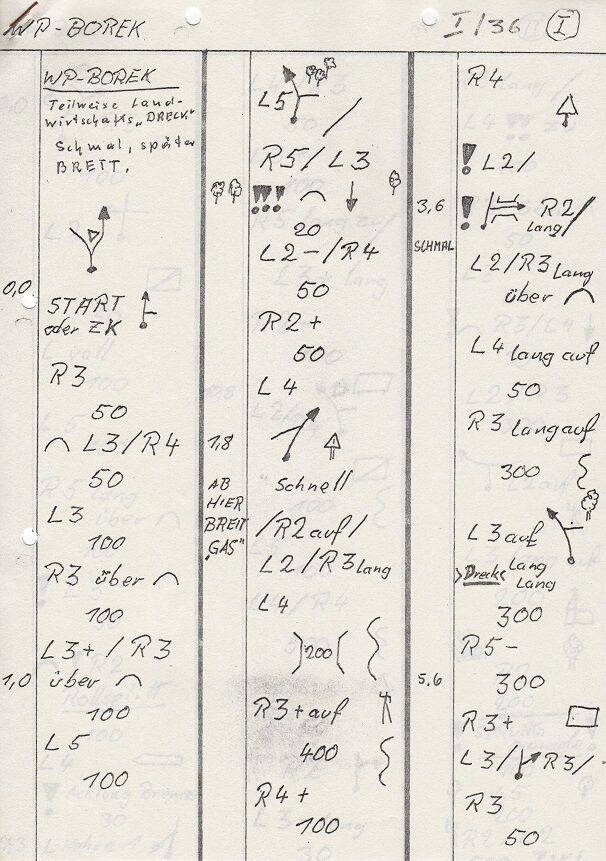 WP-BOREK
I/36 I
WP-BOREK
Teilweise Land-
wirtschafts „DRECK"
Schmal, später
BRETT.
0,0
START
oder ZK
R3
50
L3/R4
50
L3
100
R3 über
100
L3+/R3
1,0 über
100
L5
100
L5 /
R5/L3
!!!
20
L2-/R4
50
R2+
50
L4
1,8
AB
HIER
BREIT
„GAS"
"Schnell
/R2auf/
L2/R3lang
L4
)200(
R3+auf
400
R4+
100
R4
! L2/
3,6 ! R2/
lang
SCHMAL
L2/R3lang
über
L4 lang auf
50
R3 langauf
300
L3auf
lang
>Dreck< Lang
300
R5-
5.6 300
R3+
L3/ R3/-
R3
50